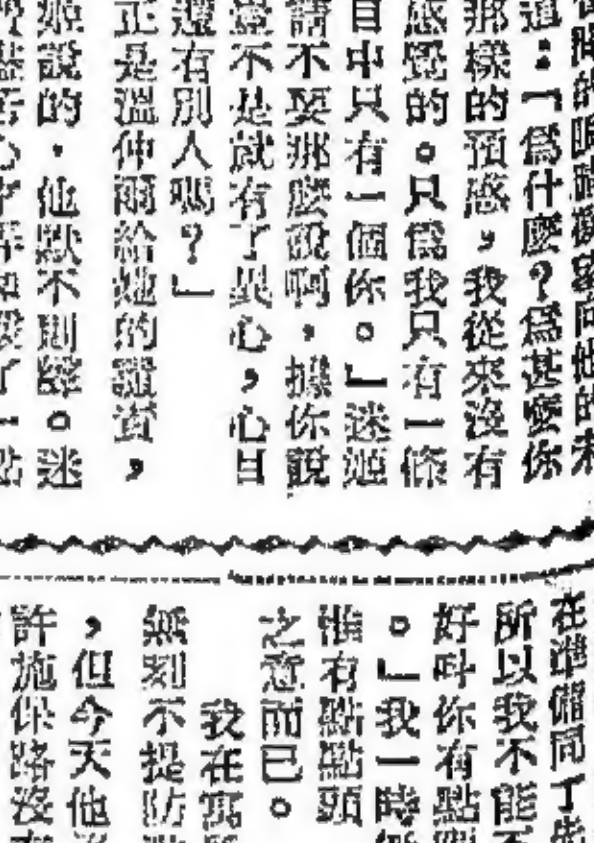 向他的未
道：「爲什麼？爲甚麼你
那樣的預感，我從來沒有
感覺的。只爲我只有一條
目中只有一個你。」迷姬
請不要那麼說啊，據你說
豈不是就有了異心，心目
還有別人嗎？」
正是溫仲爾給她的讚賞，
姬說的，他默不則聲。迷
了一點
在準備同丁先
所以我不能不
好叫你有點
。」我一時
惟有點點頭
之意而已。
我在寓
無刻不提防
，但今天他
許施保路沒有